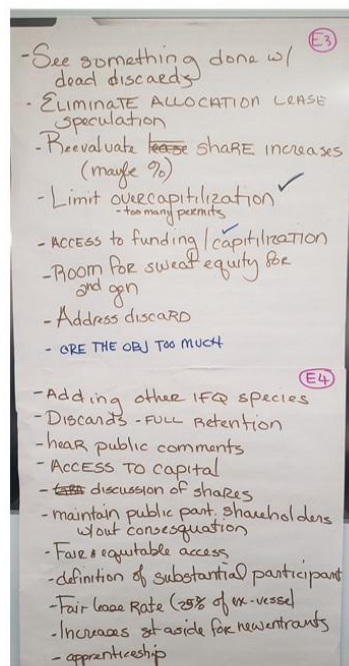 E3
- See something done w/
dead discards
- ELIMINATE ALLOCATION LEASE
speculation
- Reevaluate lease shaRE increases
(maybe %)
- Limit overcapitilization ✓
- too many permits
- ACCESS to funding / capitilization
- Room for sweat equity for
2nd gen
- Address discaRD
- ARE THE OBJ TOO MUCH
E4
- Adding other IFQ species
- Discards - FULL Retention
- heaR public comments
- ACCESS TO capital
- discussion of shares
- maintain public part. shareholders
w/out consesquation
- Fair & equitable access
- definition of substantial participant
- Fair lease Rate (25% of ex-vessel
- Increases set aside for new entrants
- apprenticeship